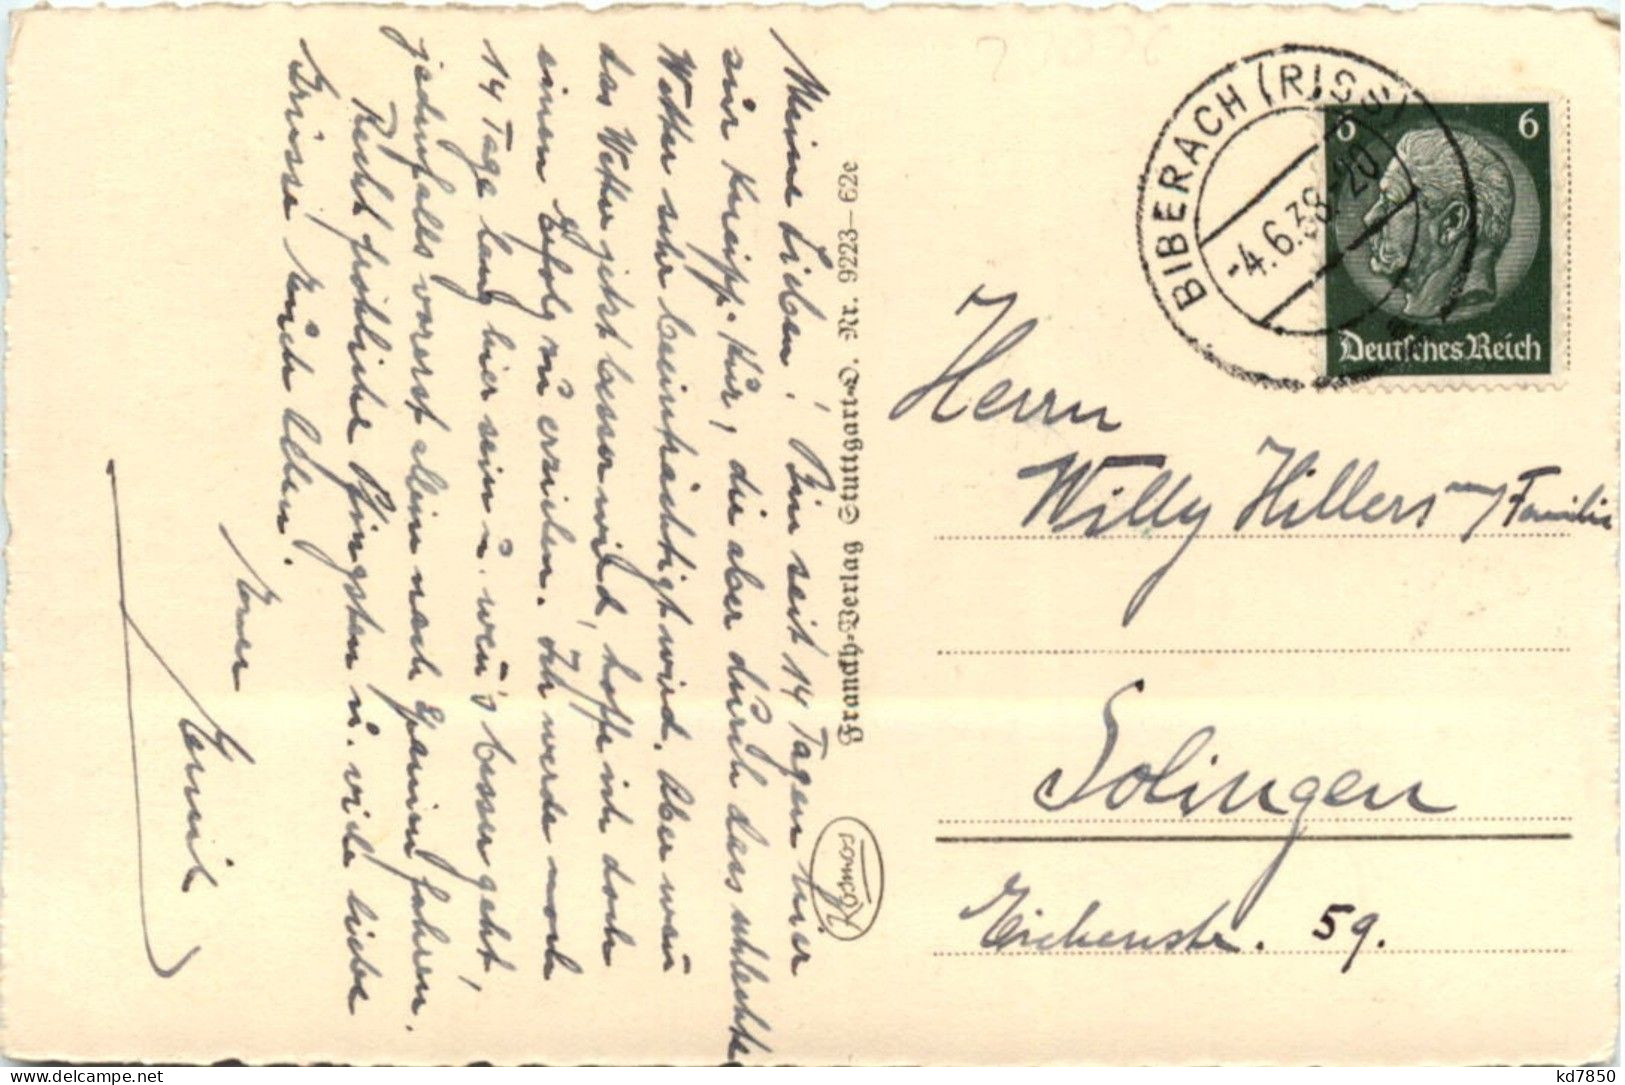 Meine Lieben! Bin seit 14 Tagen hier
zur Kneipp-Kur, die aber durch das schlechte
Wetter sehr beeinträchtigt wird. Aber wenn
das Wetter jetzt besser wird, hoffe ich doch
einen Erfolg zu erzielen. Ich werde noch
14 Tage lang hier sein u. wenn's besser geht,
jedenfalls vorerst allein nach Hause fahren.
Recht fröhliche Pfingsten u. viele liebe
Grüsse Euch Allen.
Euer
Franckh-Verlag Stuttgart-O. Nr. 9223—62e
Kosmos
BIBERACH (RISS)
-4.6.38.-20
6 6
Deutsches Reich
Herrn
Willy Hillers / Familie
Solingen
Eichenstr. 59.
kd7850